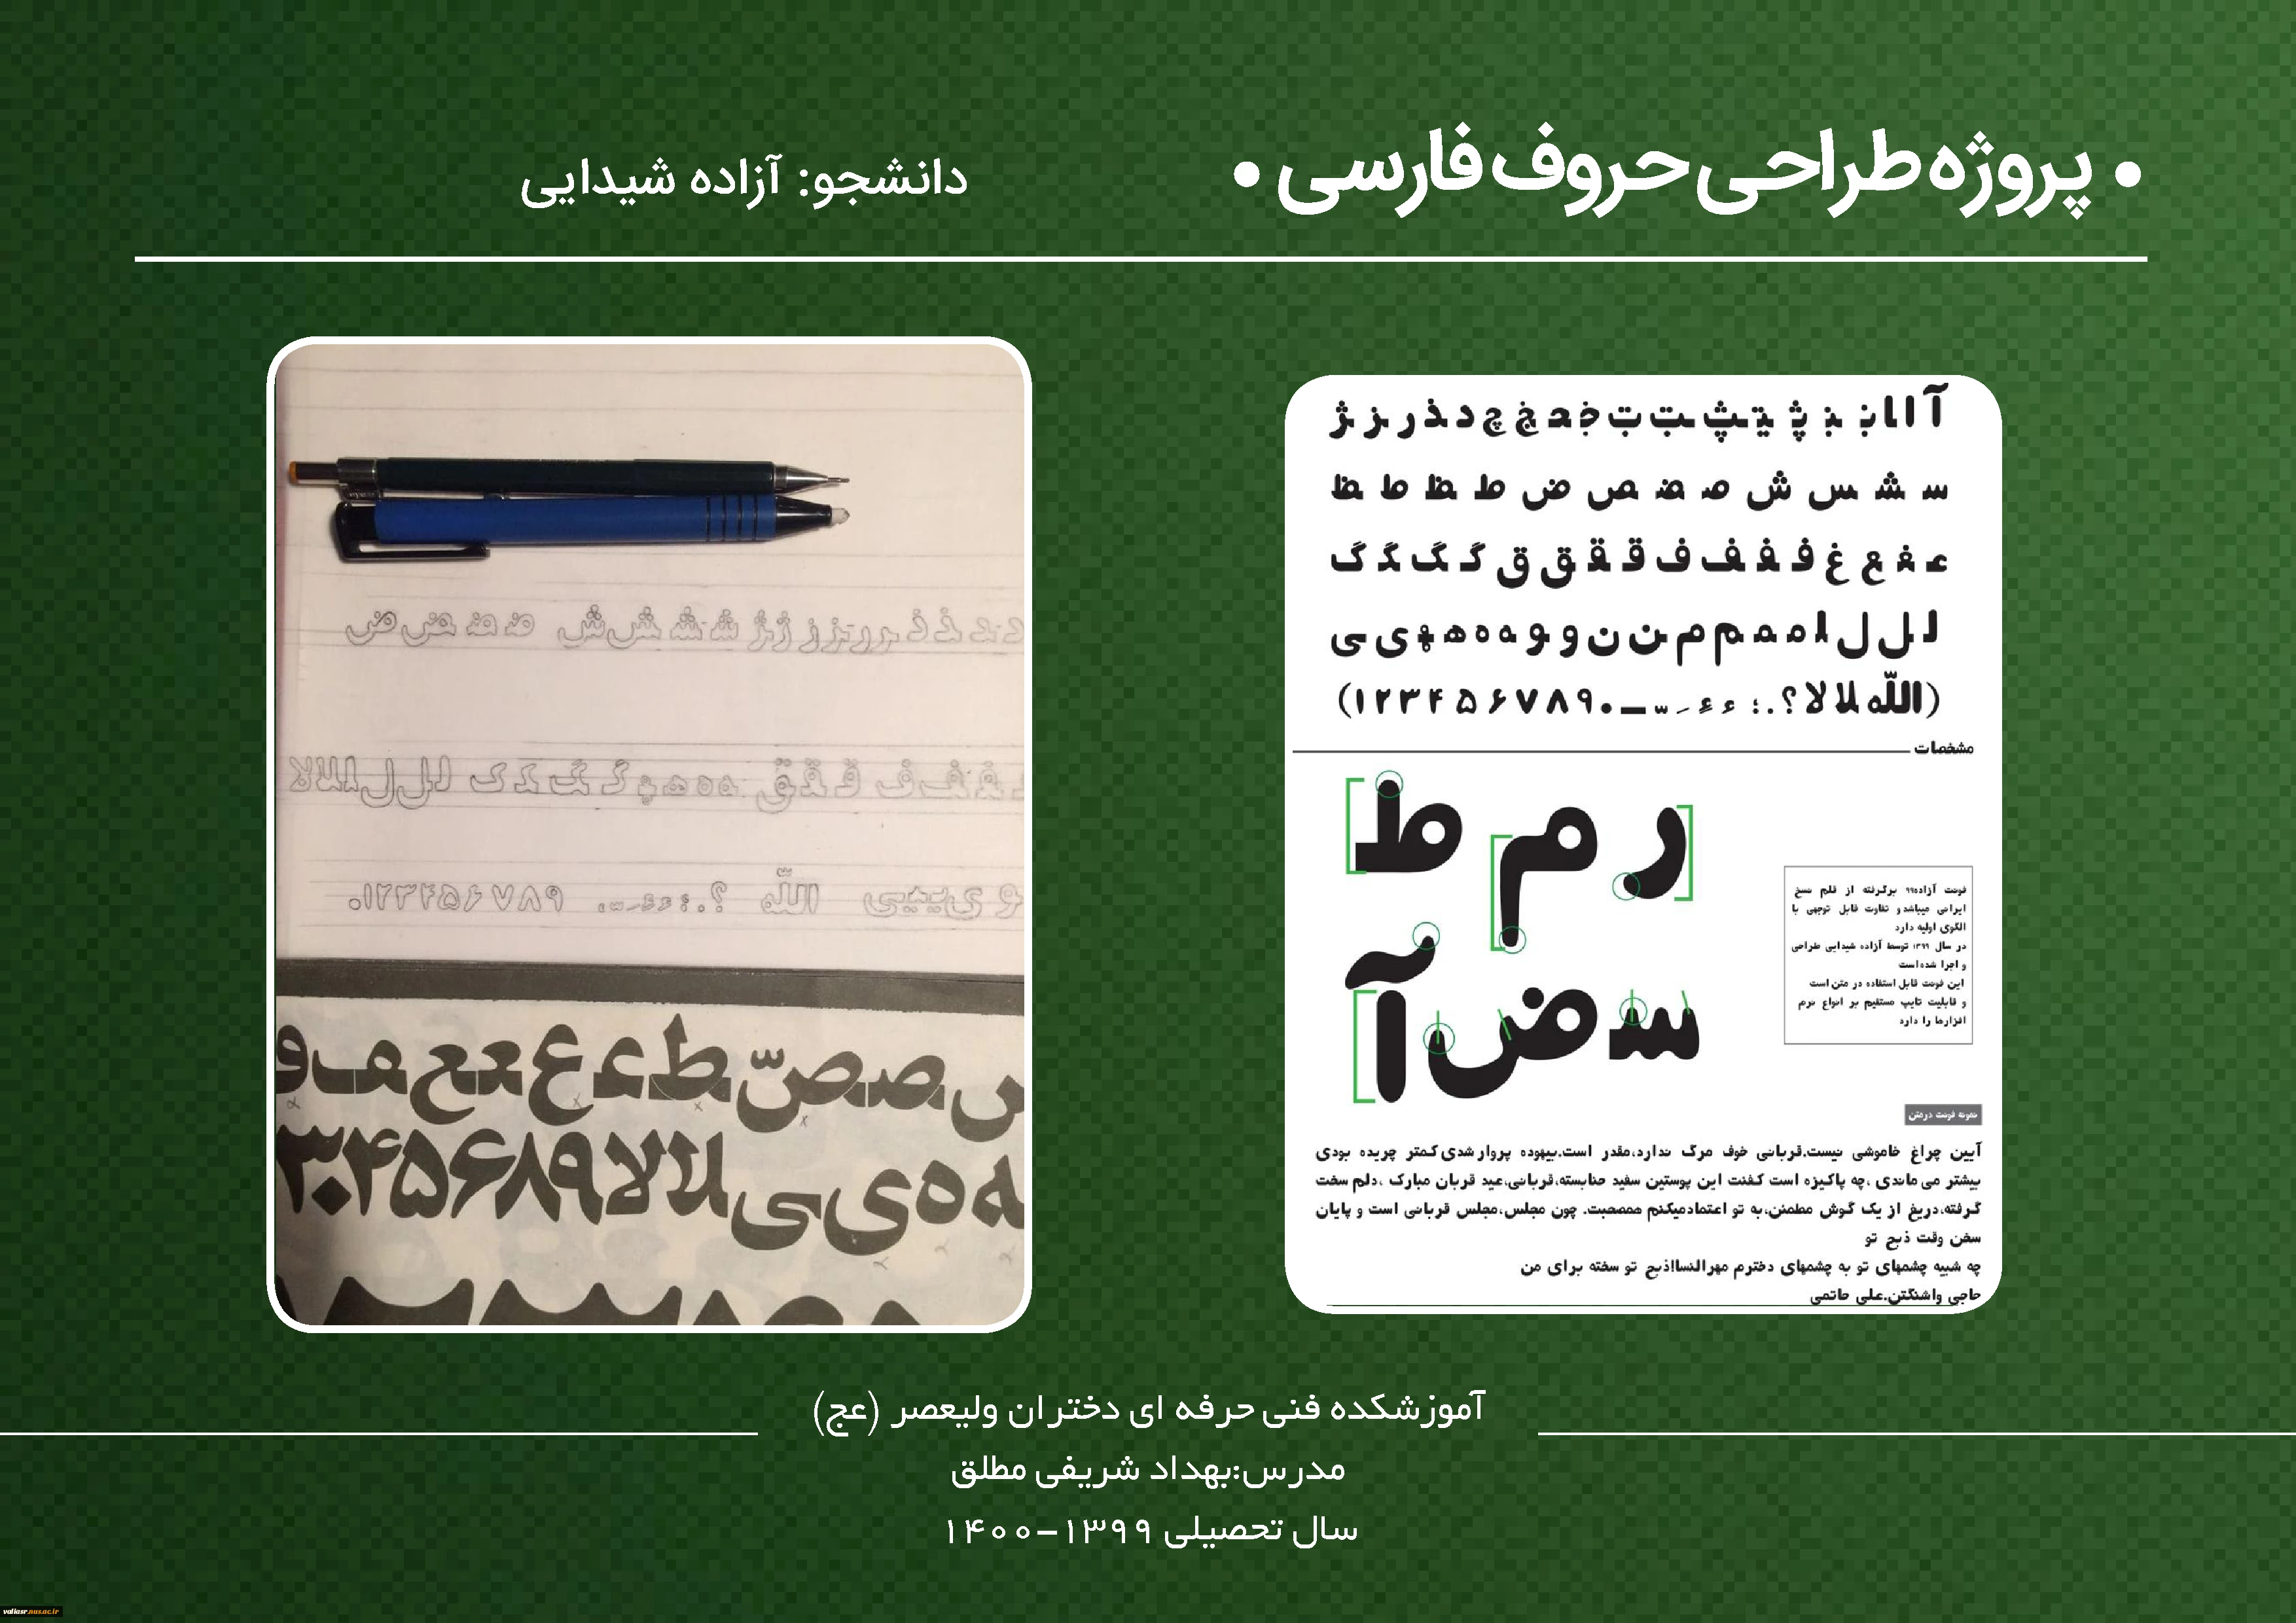 • پروژه طراحی حروف فارسی •
دانشجو: آزاده شیدایی
آ ا ا با بـ ـبـ پ یـ ـپـ ـت ت خـ حـ خ چ د ذ ر ز ژ
سـ شـ ـس ش صـ ضـ ـص ض ط ظ ط ظ
عـ غـ ـع غ فـ ـفـ ـف ف قـ ـقـ ـق ق گـ گ گـ گ
لـ ل ل ا مـ ـمـ ـم م ـن ن و و ه ه هـ ـهـ ی ی
(الله لا لا ؟ . : ء ـ ۱۲۳۴۵۶۷۸۹۰)
مشخصات
ر م ط
سـ ض آ
فونت آزاده۹۹ برگرفته از قلم نسخ
ایرانی میباشد و تفاوت قابل توجهی با
الگوی اولیه دارد
در سال ۱۳۹۹ توسط آزاده شیدایی طراحی
و اجرا شده است
این فونت قابل استفاده در متن است
و قابلیت تایپ مستقیم بر انواع نرم
افزارها را دارد
نمونه فونت درمتن
آیین چراغ خاموشی نیست.قربانی خوف مرگ ندارد،مقدر است.بیهوده پروار شدی کمتر چریده بودی
بیشتر می ماندی ،چه پاکیزه است کفنت این پوستین سفید حنابسته،قربانی،عید قربان مبارک ،دلم سخت
گرفته،دریغ از یک گوش مطمئن،به تو اعتمادمیکنم همصحبت. چون مجلس،مجلس قربانی است و پایان
سخن وقت ذبح تو
چه شبیه چشمهای تو به چشمهای دخترم مهرالنسا!ذبح تو سخته برای من
حاجی واشنگتن.علی حاتمی
ص صـ صّ ط عـ ع ـعـ ـع ف و
ه ه ی ی لا لا ۹ ۸ ۶ ۵ ۴ ۰ ۳
آموزشکده فنی حرفه ای دختران ولیعصر (عج)
مدرس:بهداد شریفی مطلق
سال تحصیلی ۱۳۹۹-۱۴۰۰
valiasr.nus.ac.ir